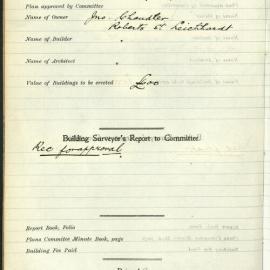 Plan approved by Committee
Name of Owner Jno. Chandler
Roberts St Leichhardt
Name of Builder "
Name of Architect "
Value of Buildings to be erected
Building Surveyor's Report to Committee.
Rec for approval
Report Book, Folio
Plans Committee Minute Book, page
Building Fee Paid